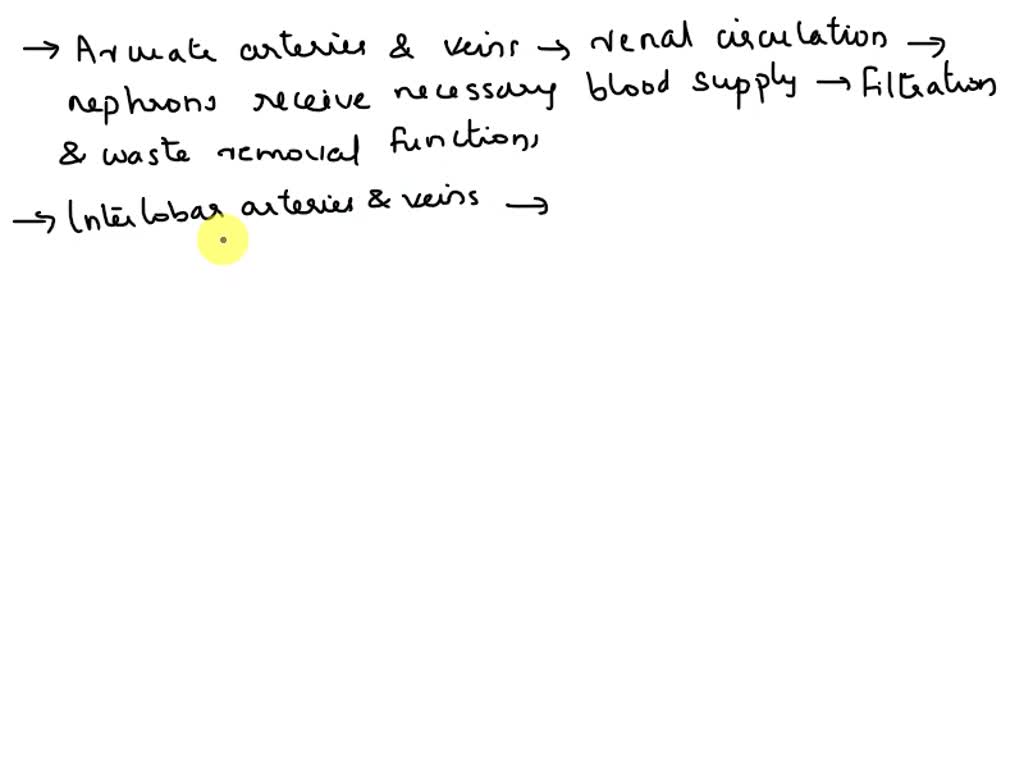 → Arcuate arteries & veins → renal circulation →
nephrons receive necessary blood supply → Filtration
& waste removal functions
→ Interlobar arteries & veins →